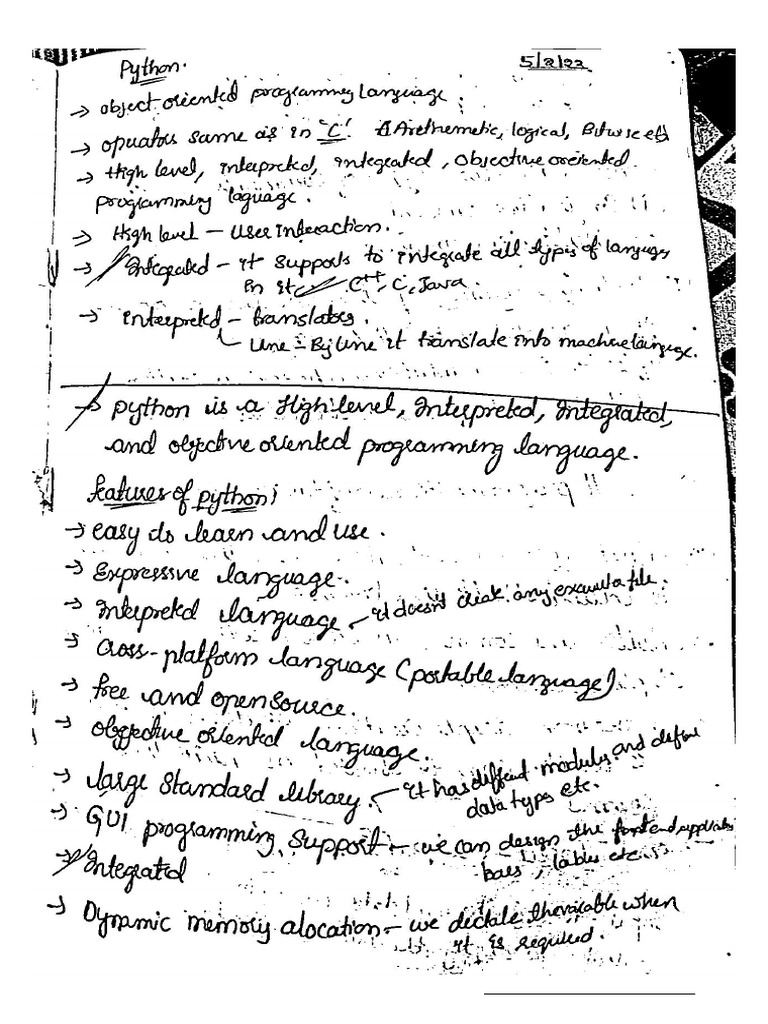 Python. 5/2/22
→ object oriented programming language.
→ opuators same as in "C". Arethemetic, logical, Bitwise etc)
→ High level, interpreted, integrated, objective oriented
programming laguage.
→ High level – User Interaction.
→ Integrated – it supports to integrate all types of languages
in it C++, C, Java.
→ interpreted – translators.
Line – By line it translate into machine language.
→ python is a High level, Interpreted, Integrated,
and objective oriented programming language.
features of python:
→ easy to learn and use.
→ Expressive language.
→ Interpreted language – it doesn't create any executa file.
→ cross-platform language (portable language)
→ free and opensource.
→ objective oriented language.
→ large standard library. – it has diffrent modules and define
data types etc.
→ GUI programming support – we can design the
bars, lables etc.
→ Integrated
→ Dynamic memory alocation – we declale the variable when
it is required.